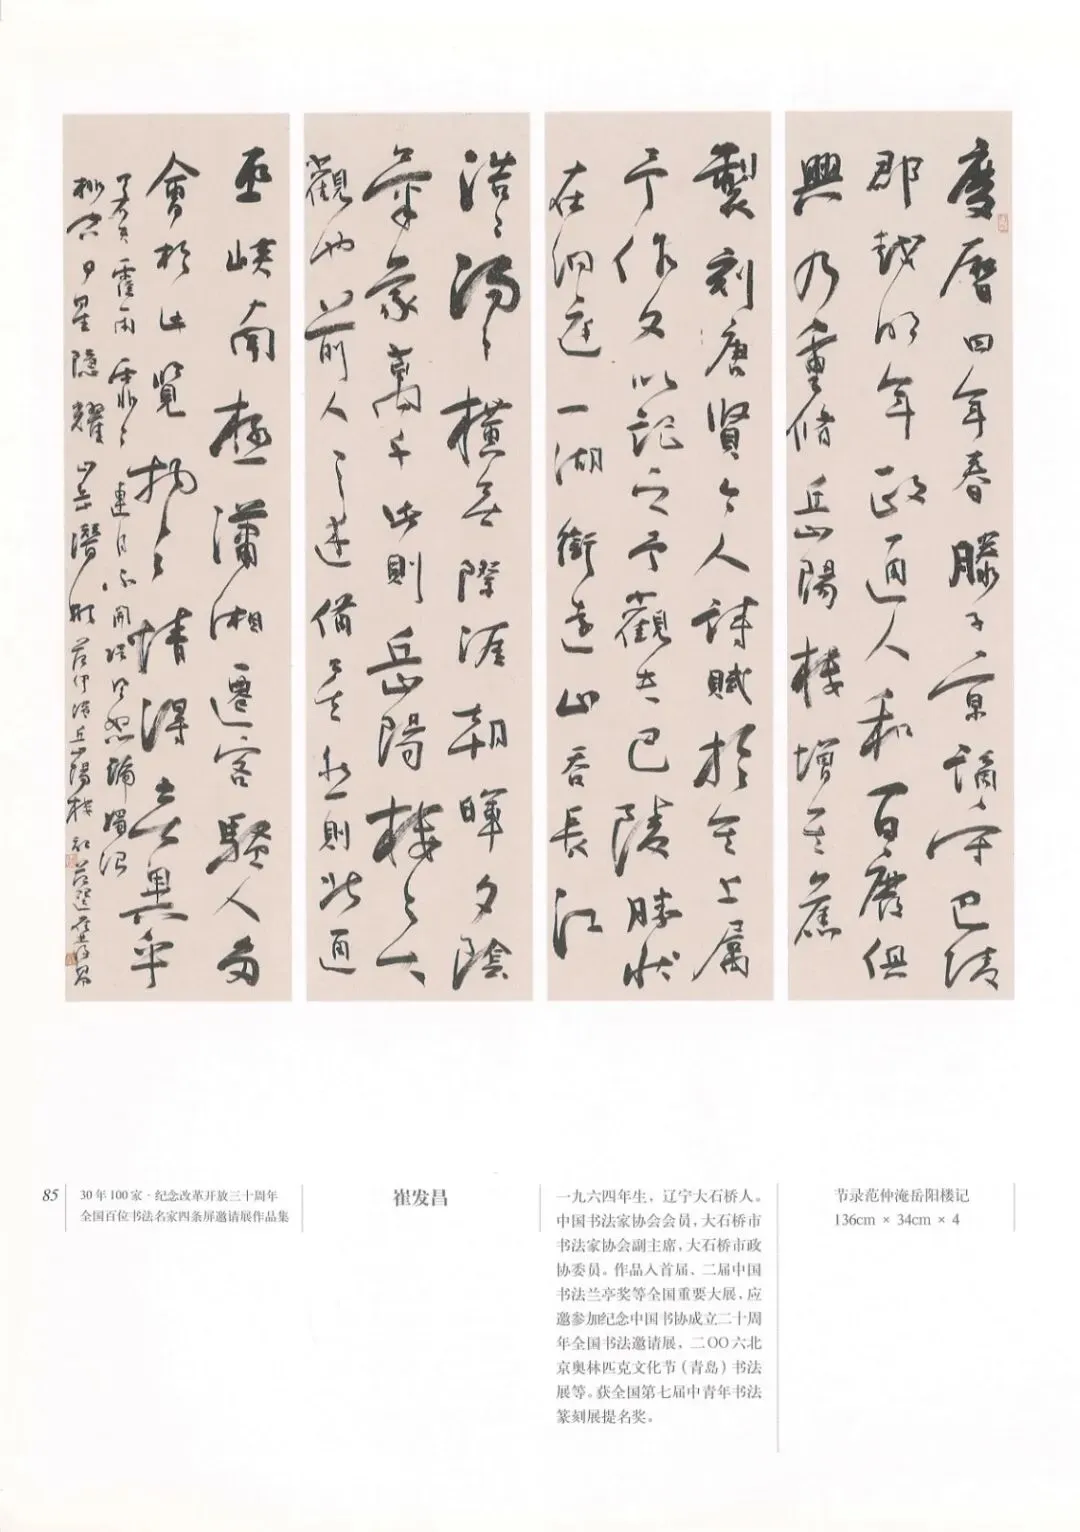 慶曆四年春滕子京謫守巴陵
郡越明年政通人和百廢俱
興乃重修岳陽樓增其舊
製刻唐賢今人詩賦於其上屬
予作文以記之予觀夫巴陵勝狀
在洞庭一湖銜遠山吞長江
浩々湯々橫無際涯朝暉夕陰
氣象萬千此則岳陽樓之大
觀也前人之述備矣然則北通
巫峽南極瀟湘遷客騷人多
會於此覽物之情得無異乎
若夫霪雨霏々連月不開陰風怒號濁浪
排空日星隱耀山岳潛形范仲淹岳陽樓記
85
30年100家·纪念改革开放三十周年
全国百位书法名家四条屏邀请展作品集
崔发昌
一九六四年生，辽宁大石桥人。
中国书法家协会会员，大石桥市
书法家协会副主席，大石桥市政
协委员。作品入首届、二届中国
书法兰亭奖等全国重要大展，应
邀参加纪念中国书协成立二十周
年全国书法邀请展，二〇〇六北
京奥林匹克文化节（青岛）书法
展等。获全国第七届中青年书法
篆刻展提名奖。
节录范仲淹岳阳楼记
136cm × 34cm × 4